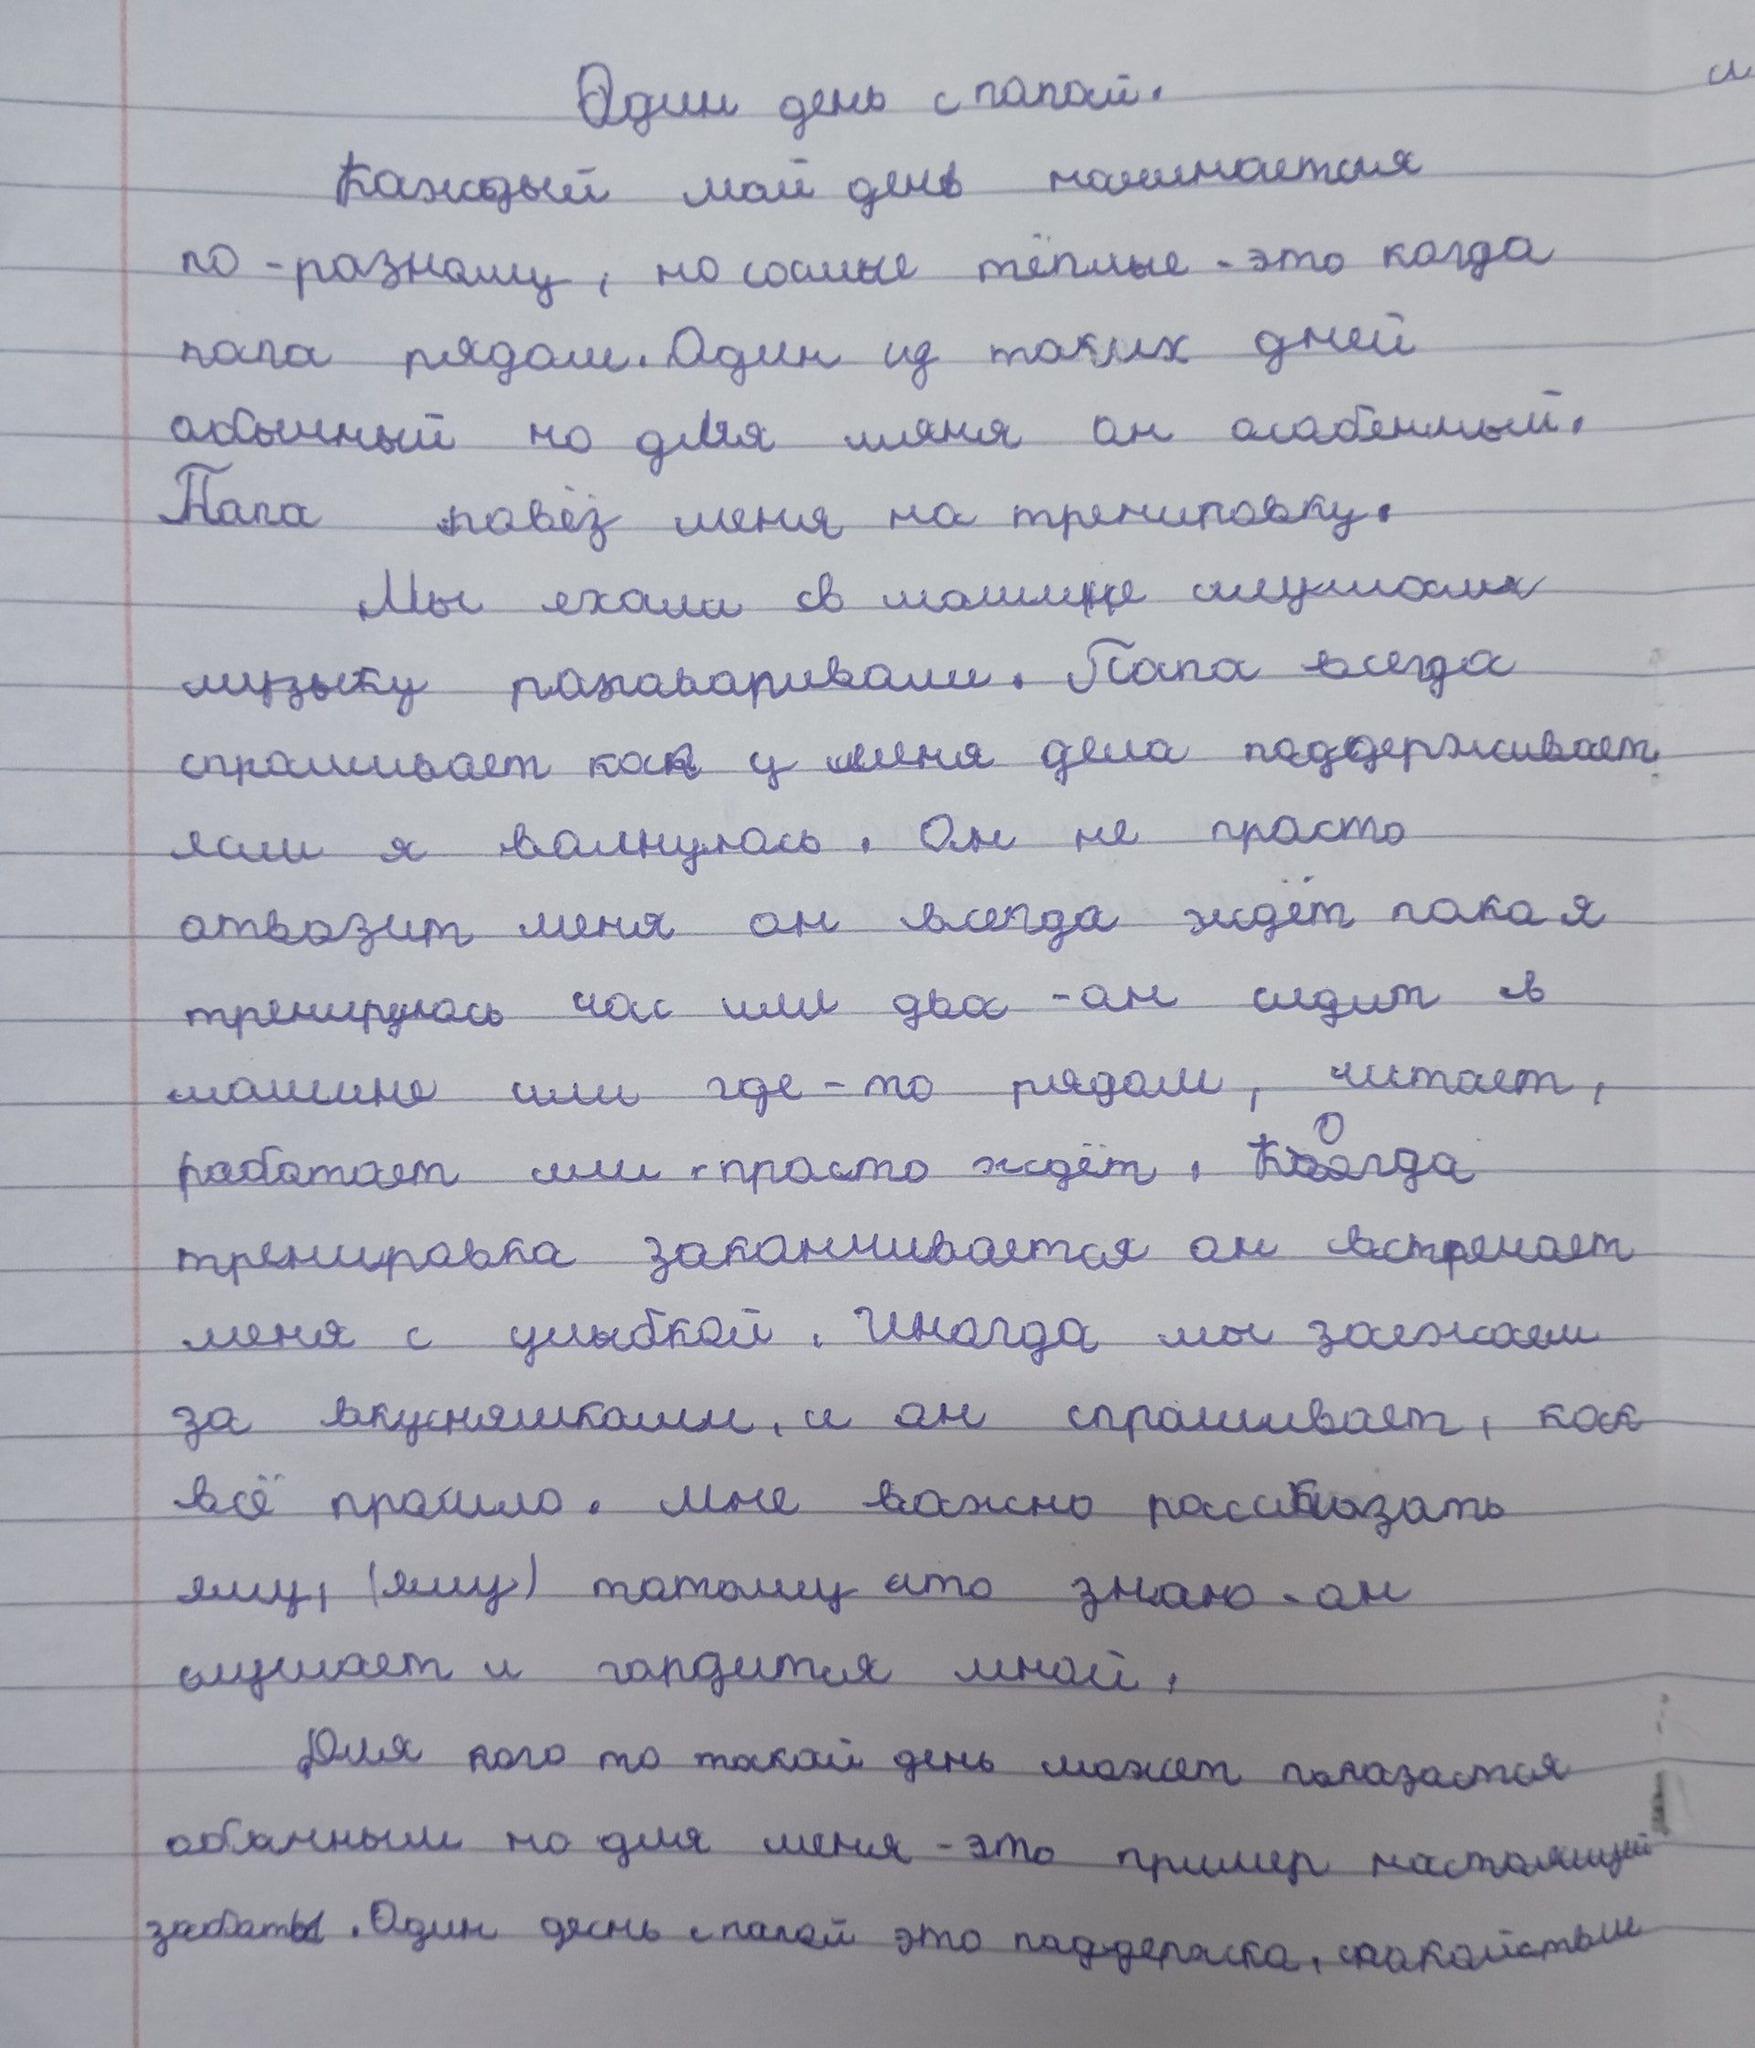 Один день с папой.
Каждый мой день начинается
по-разному, но самые тёплые - это когда
папа рядом. Один из таких дней
обычный но для мяня он особенный.
Папа повёз меня на тренировку.
Мы ехали в машине слушали
музыку разаваривали. Папа всегда
спрашивает как у меня дела поддерживает
если я валнуюсь. Он не просто
отвозит меня он всегда ждёт пока я
тренируюсь час или два - он сидит в
машине или где-то рядом, читает,
работает или просто ждёт. Когда
тренировка заканчивается он встречает
меня с улыбкой. Иногда мы заежаем
за вкусняшками, и он спрашивает, как
всё прошло. Мне важно рассказать
яму, (яму) потому что знаю - он
слушает и гордится мной.
Для кого то такой день может показастся
обычным но для меня - это пример настоящий
заботы. Один день с папой это поддержка, спокойствие